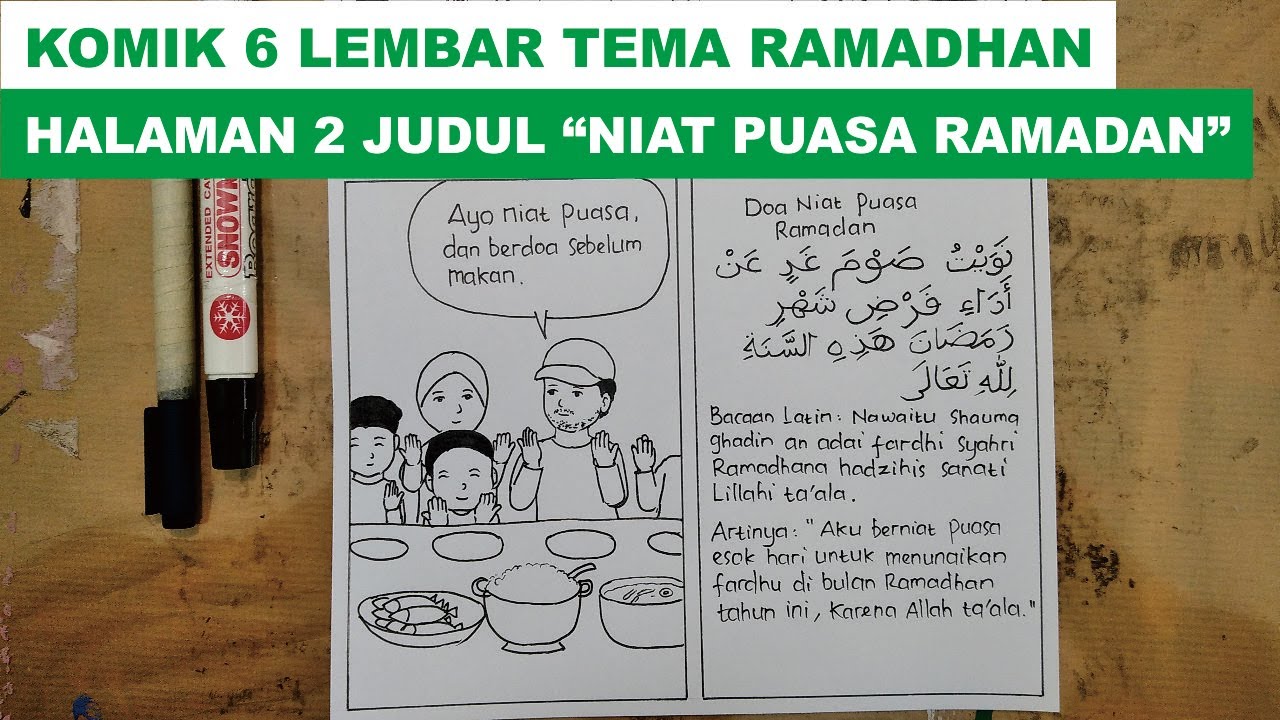 KOMIK 6 LEMBAR TEMA RAMADHAN
HALAMAN 2 JUDUL “NIAT PUASA RAMADAN”
EXTENDED CA
SNOWM
Ayo niat puasa,
dan berdoa sebelum
makan.
Doa Niat Puasa
Ramadan
نَوَيْتُ صَوْمَ غَدٍ عَنْ
أَدَاءِ فَرْضِ شَهْرِ
رَمَضَانَ هَذِهِ السَّنَةِ
لِلّٰهِ تَعَالَى
Bacaan Latin : Nawaitu Shauma
ghadin an adai fardhi syahri
Ramadhana hadzihis sanati
Lillahi ta'ala.
Artinya : " Aku berniat puasa
esok hari untuk menunaikan
fardhu di bulan Ramadhan
tahun ini, Karena Allah ta'ala."